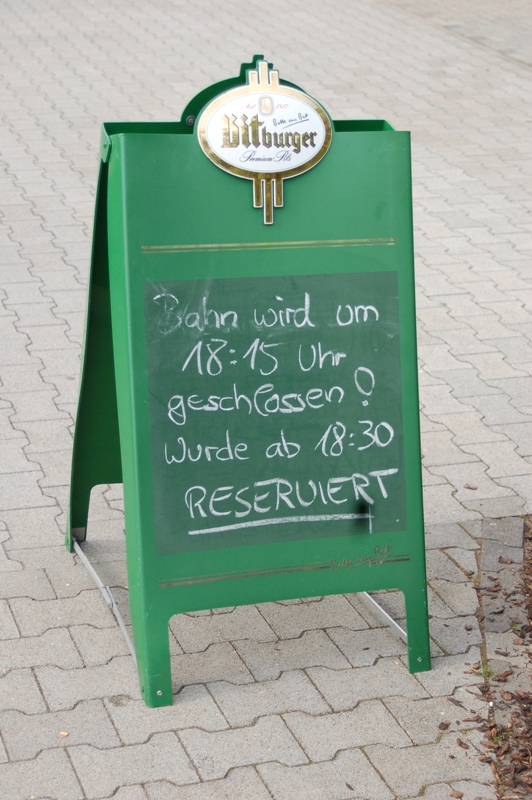 Bitte ein Bit
Bitburger
Premium Pils
Bahn wird um
18:15 Uhr
geschlossen!
Wurde ab 18:30
RESERVIERT